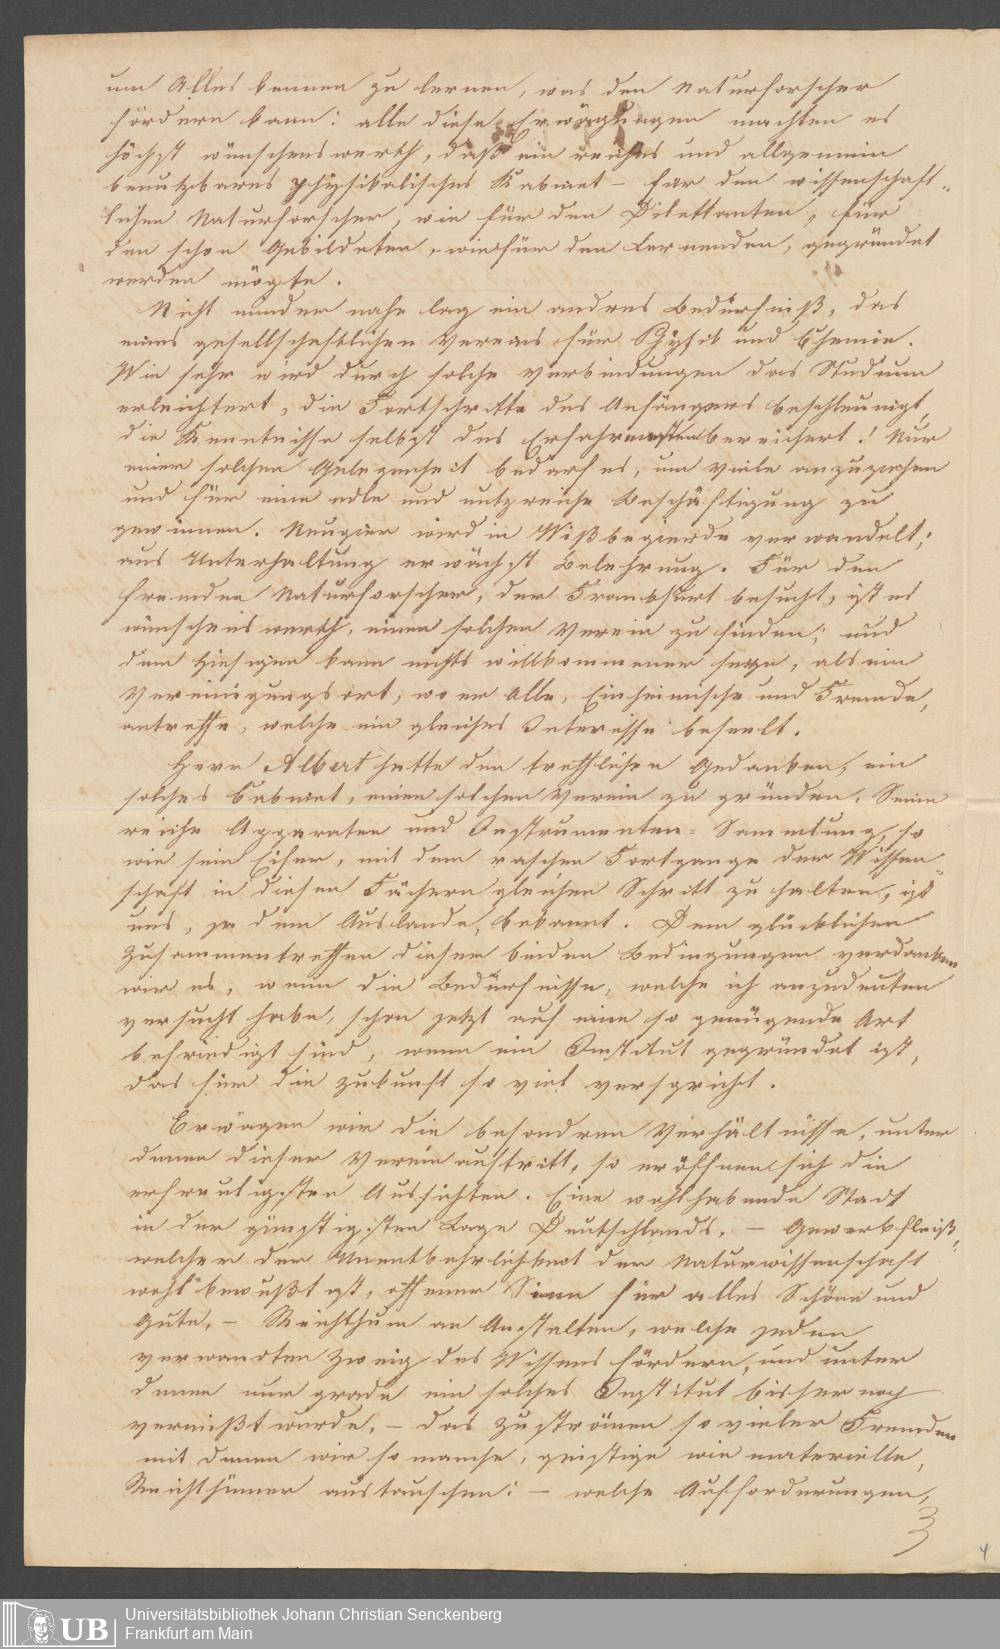 um Alles kennen zu lernen, was den Naturforscher
fördern kann: alle diese Erwägungen machten es
höchst wünschenswerth, daß ein reiches und allgemein
benutzbares physikalisches Kabinet – für den wissenschaft-
lichen Naturforscher, wie für den Dilettanten, für
den schon Gebildeten, wie für den Lernenden, gegründet
werden mögte.
Nicht minder nahe lag ein andres Bedürfniß, das
eines gesellschaftlichen Vereins für Physik und Chemie.
Wie sehr wird durch solche Verbindungen das Studium
erleichtert, die Fortschritte des Anfängers beschleunigt,
die Kenntnisse selbst des Erfahrensten bereichert! Nur
einer solchen Gelegenheit bedarf es, um viele anzuziehen
und für eine edle und nutzreiche Beschäftigung zu
gewinnen. Neugier wird in Wißbegierde verwandelt;
aus Unterhaltung erwächst Belehrung. Für den
fremden Naturforscher, der Frankfurt besucht, ist es
wünschenswerth, einen solchen Verein zu finden; und
dem Hiesigen kann nichts willkommener seyn, als ein
Vereinigungsort, wo er Alle, Einheimische und Fremde,
antreffe, welche ein gleiches Interesse beseelt.
Herr Albert hatte den trefflichen Gedanken, ein
solches Cabinet, einen solchen Verein zu gründen. Seine
reiche Apparaten und Instrumenten-Sammlung, so
wie sein Eifer, mit dem raschen Fortgange der Wissen-
schaft in diesen Fächern gleichen Schritt zu halten, ist
uns, ja dem Auslande, bekannt. Dem glücklichen
Zusammentreffen dieser beiden Bedingungen verdanken
wir es, wenn die Bedürfnisse, welche ich anzudeuten
versucht habe, schon jetzt auf eine so genügende Art
befriedigt sind, wenn ein Institut gegründet ist,
das für die Zukunft so viel verspricht.
Erwägen wir die besondren Verhältnisse, unter
denen dieser Verein auftritt, so eröffnen sich die
erfreuligsten Aussichten. Eine wohlhabende Stadt
in der günstigsten Lage Deutschlands, – Gewerbfleiß,
welcher der Unentbehrlichkeit der Naturwissenschaft
wohl bewußt ist, offener Sinn für alles Schöne und
Gute, – Reichthum an Anstalten, welche jeden
verwandten Zweig des Wissens fördern, und unter
denen nur grade ein solches Institut bisher noch
vermißt wurde, – das Zuströmen so vieler Fremden
mit denen wir so manche, geistige wie materielle,
Reichthümer austauschen: – welche Aufforderungen,
3
4
UB
Universitätsbibliothek Johann Christian Senckenberg
Frankfurt am Main